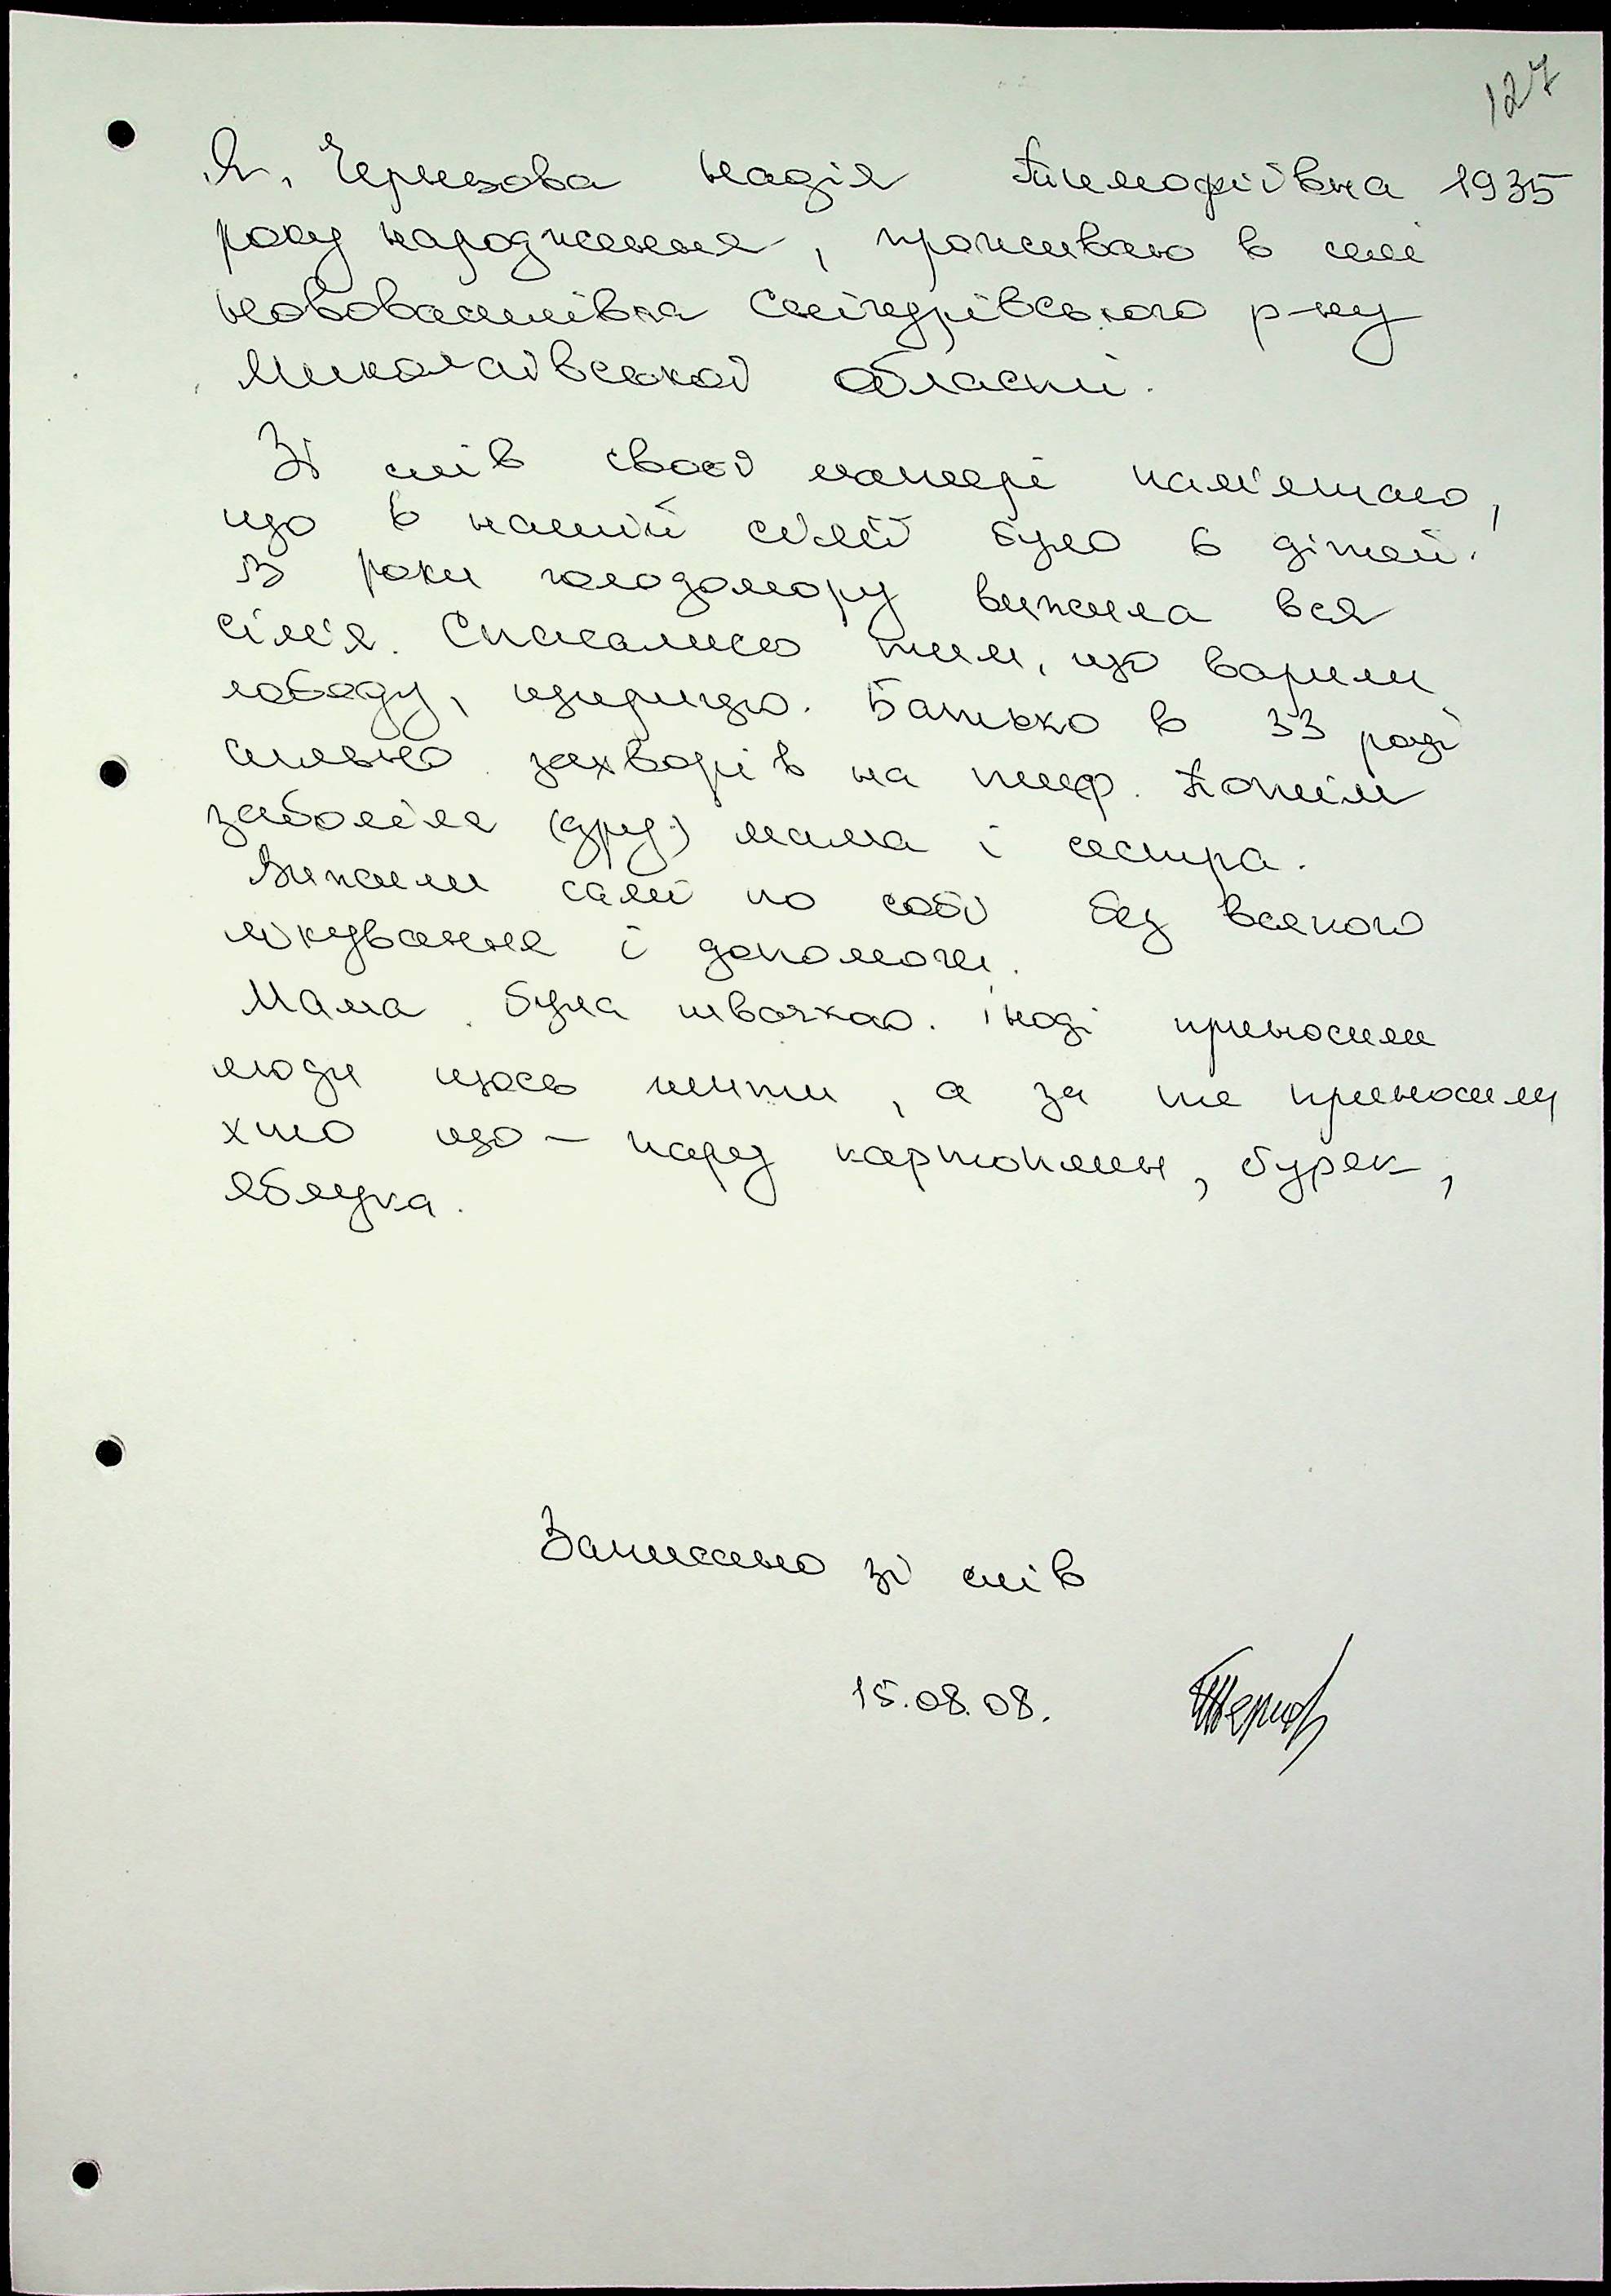 127
Я, Чернцова Надія Тимофіївна 1935
року народження, проживаю в селі
Новованшівка Снігурівського р-ну
Миколаївської області.
Зі слів своєї матері пам'ятаю,
що в нашій сім'ї було 6 дітей.
В роки голодомору вижила вся
сім'я. Спасались тим, що варили
лободу, щирицю. Батько в 33 році
сильно захворів на тиф. Потім
заболіла (друг.) мама і сестра.
Вижили самі по собі без всякого
лікування і допомоги.
Мама була швачкою. Іноді приносили
люди щось шити, а за те приносили
хто що – пару картоплин, буряк,
яблука.
Записано зі слів
15.08.08.